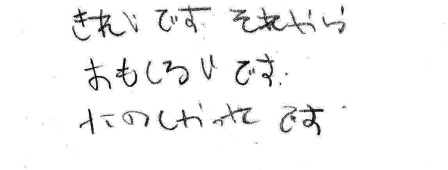 きれいです それから
おもしろいです.
たのしかってです